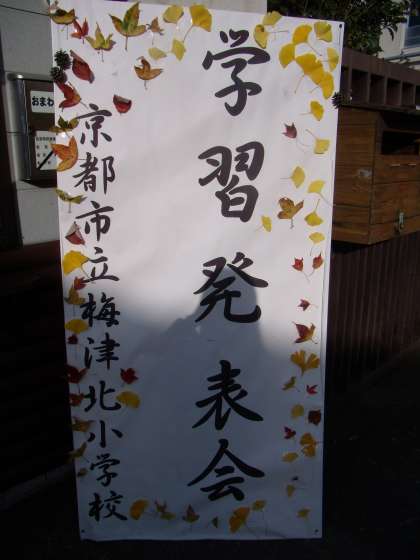 学習発表会
京都市立梅津北小学校
おまわ